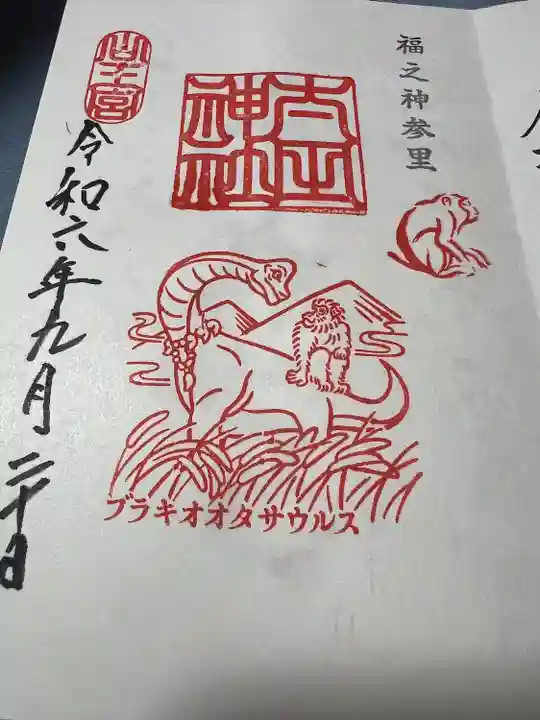 福之神参里
太田神社
山王宮
令和六年九月二十日
ブラキオオタサウルス